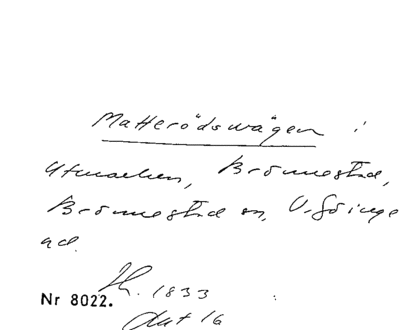 Matterödswägen i
Utmarken, Brönnestad,
Brönnestad sn, V. Göinge
hd.
Th. 1833
Nr 8022.
Akt 16